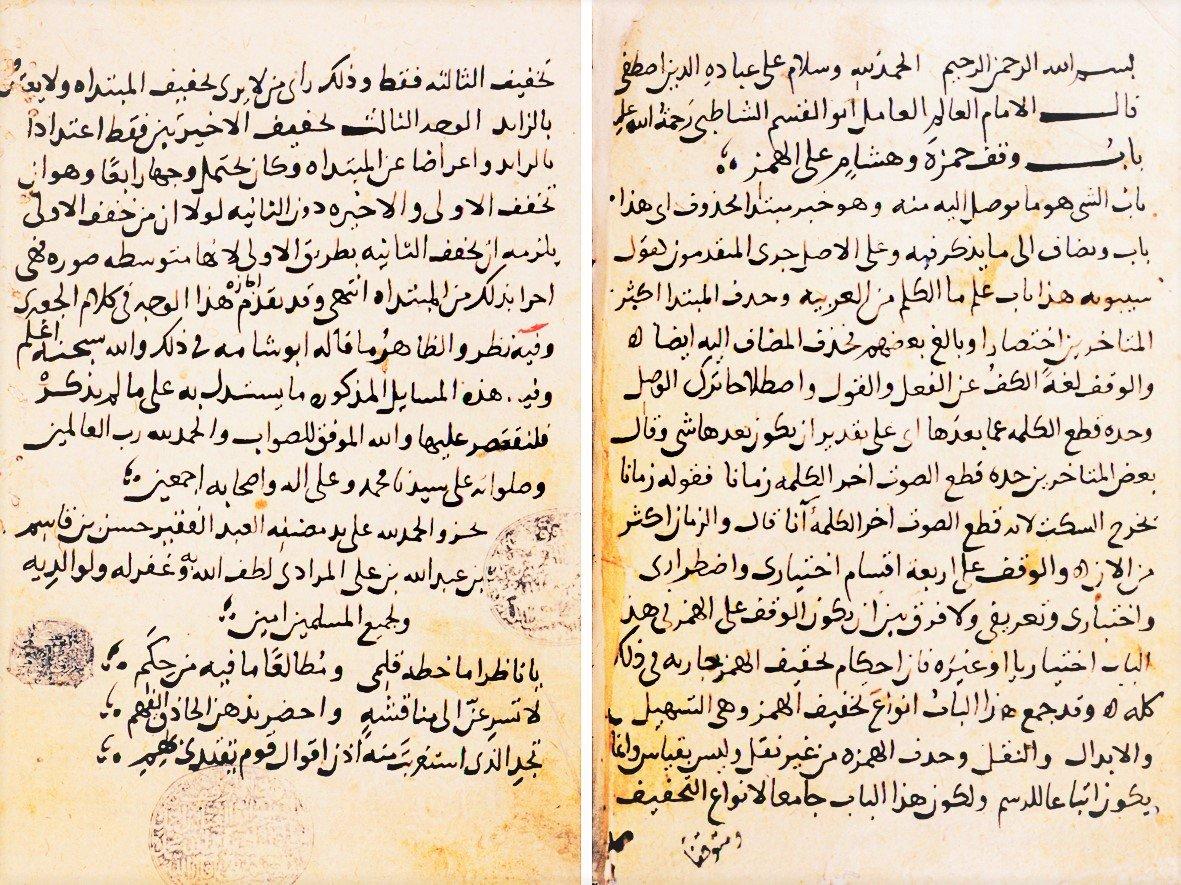 بسم الله الرحمن الرحيم الحمد لله وسلام على عباده الذين اصطفى
قال الامام العالم العامل ابو القسم الشاطبي رحمة الله عليه
باب وقف حمزة وهشام على الهمز
باب الشي هو ما يوصل اليه منه وهو خبر مبتدا محذوف اى هذا
باب ويضاف الى ما يذكر فيه وعلى الاصل جرى المتقدمون كقول
سيبويه هذا باب علم ما الكلم من العربيه وحذف المبتدا اكثر
المتاخرين اختصارا وبالغ بعضهم فحذف المضاف اليه ايضا ه
والوقف لغة الكف عن الفعل والقول واصطلاحا ترك الوصل
وحده قطع الكلمه عما بعدها اى على تقدير ان يكون بعدها شي وقال
بعض المتاخرين حده قطع الصوت اخر الكلمه زمانا فقوله زمانا
يخرج السكت لانه قطع الصوت اخر الكلمة آنا قال والزمان اكثر
من الان ه والوقف على اربعة اقسام اختيارى واضطرارى
واختبارى وتعريفى ولا فرق بين ان يكون الوقف على الهمز فى هذا
الباب اختياريا او غيره فان احكام تخفيف الهمز جاريه فى ذلك
كله ه وقد جمع هذا الباب انواع تخفيف الهمز وهى التسهيل
والابدال والنقل وحذف الهمزه من غير نقل وليس بقياس وانما
يكون اتباعا للرسم ولكون هذا الباب جامعا لانواع التخفيف
تخفيف الثالثه فقط وذلك راى من لا يرى تخفيف المبتداه ولا يعتد
بالزايد الوجه الثالث تخفيف الاخيرتين فقط اعتدادا
بالزايد واعراضا عن المبتداه وكان يحتمل وجها رابعا وهو ان
تخفف الاولى والاخيره دون الثانيه لولا ان من خفف الاولى
يلزمه ان يخفف الثانيه بطريق الاولى لانها متوسطه صوره فهى
احرا بذلك من المبتداه انتهى وقد تقدم ان هذا الوجه فى كلام الجعبرى
وفيه نظر والظاهر ما قاله ابو شامه فى ذلك والله سبحنه اعلم
وفى هذه المسايل المذكوره ما يستدل به على ما لم يذكر
فلنقتصر عليها والله الموفق للصواب والحمد لله رب العالمين
وصلواته على سيدنا محمد وعلى اله واصحابه اجمعين
نجز والحمد لله على يد مصنفه العبد الفقير حسن بن قاسم
بن عبد الله بن على المرادى لطف الله به وغفر له ولوالديه
ولجميع المسلمين امين
يا ناظرا ما خطه قلمى ومطالعا ما فيه من حكم
لا تسرعن الى مناقشه واحضر بذهن الحاذق الفهم
تجد الذى استغربت منه اذن اقوال قوم يقتدى بهم